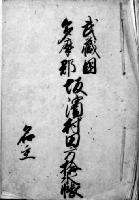 武蔵國
多摩郡坂濱村田方検帳
名主